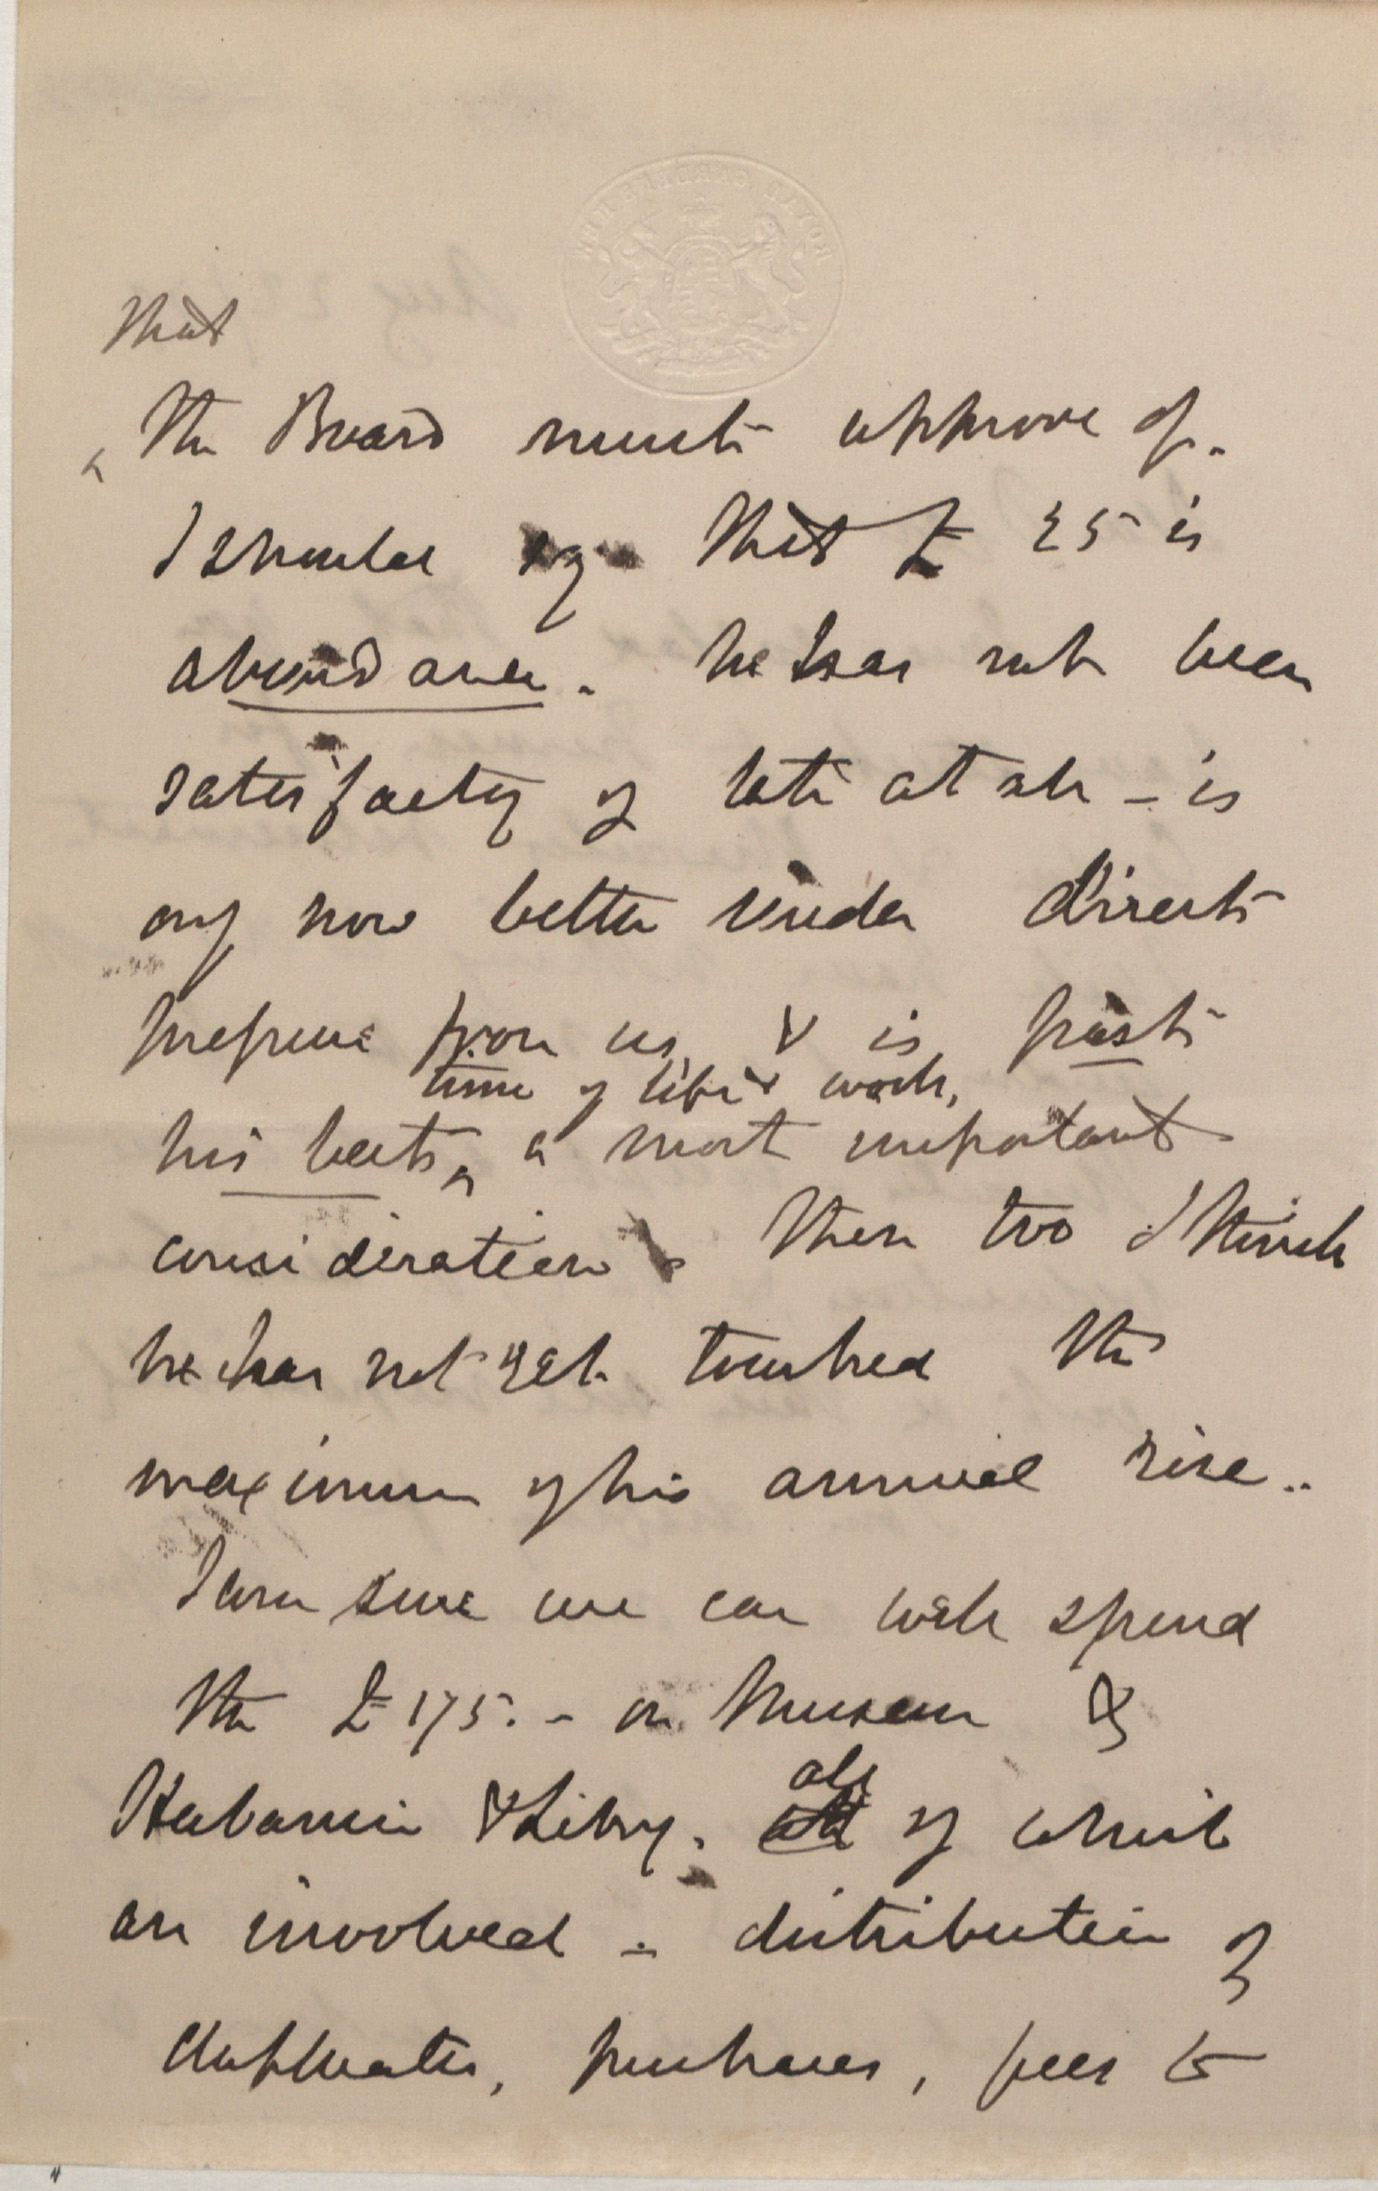 that
the Board must approve of.
I should say that £ 25 is
abundance. he has not been
satisfacty of late at all - is
only now better under direct
pressure from us, & is past
time of life & work,
his best, a most important
consideration. Then too I think
he has not yet touched the
maximum of his annual rise..
I am sure we can well spend
the £175. - on Museum &
Herbarium & Liby. all of which
are involved - distribution of
duplicates, purchases, fees to